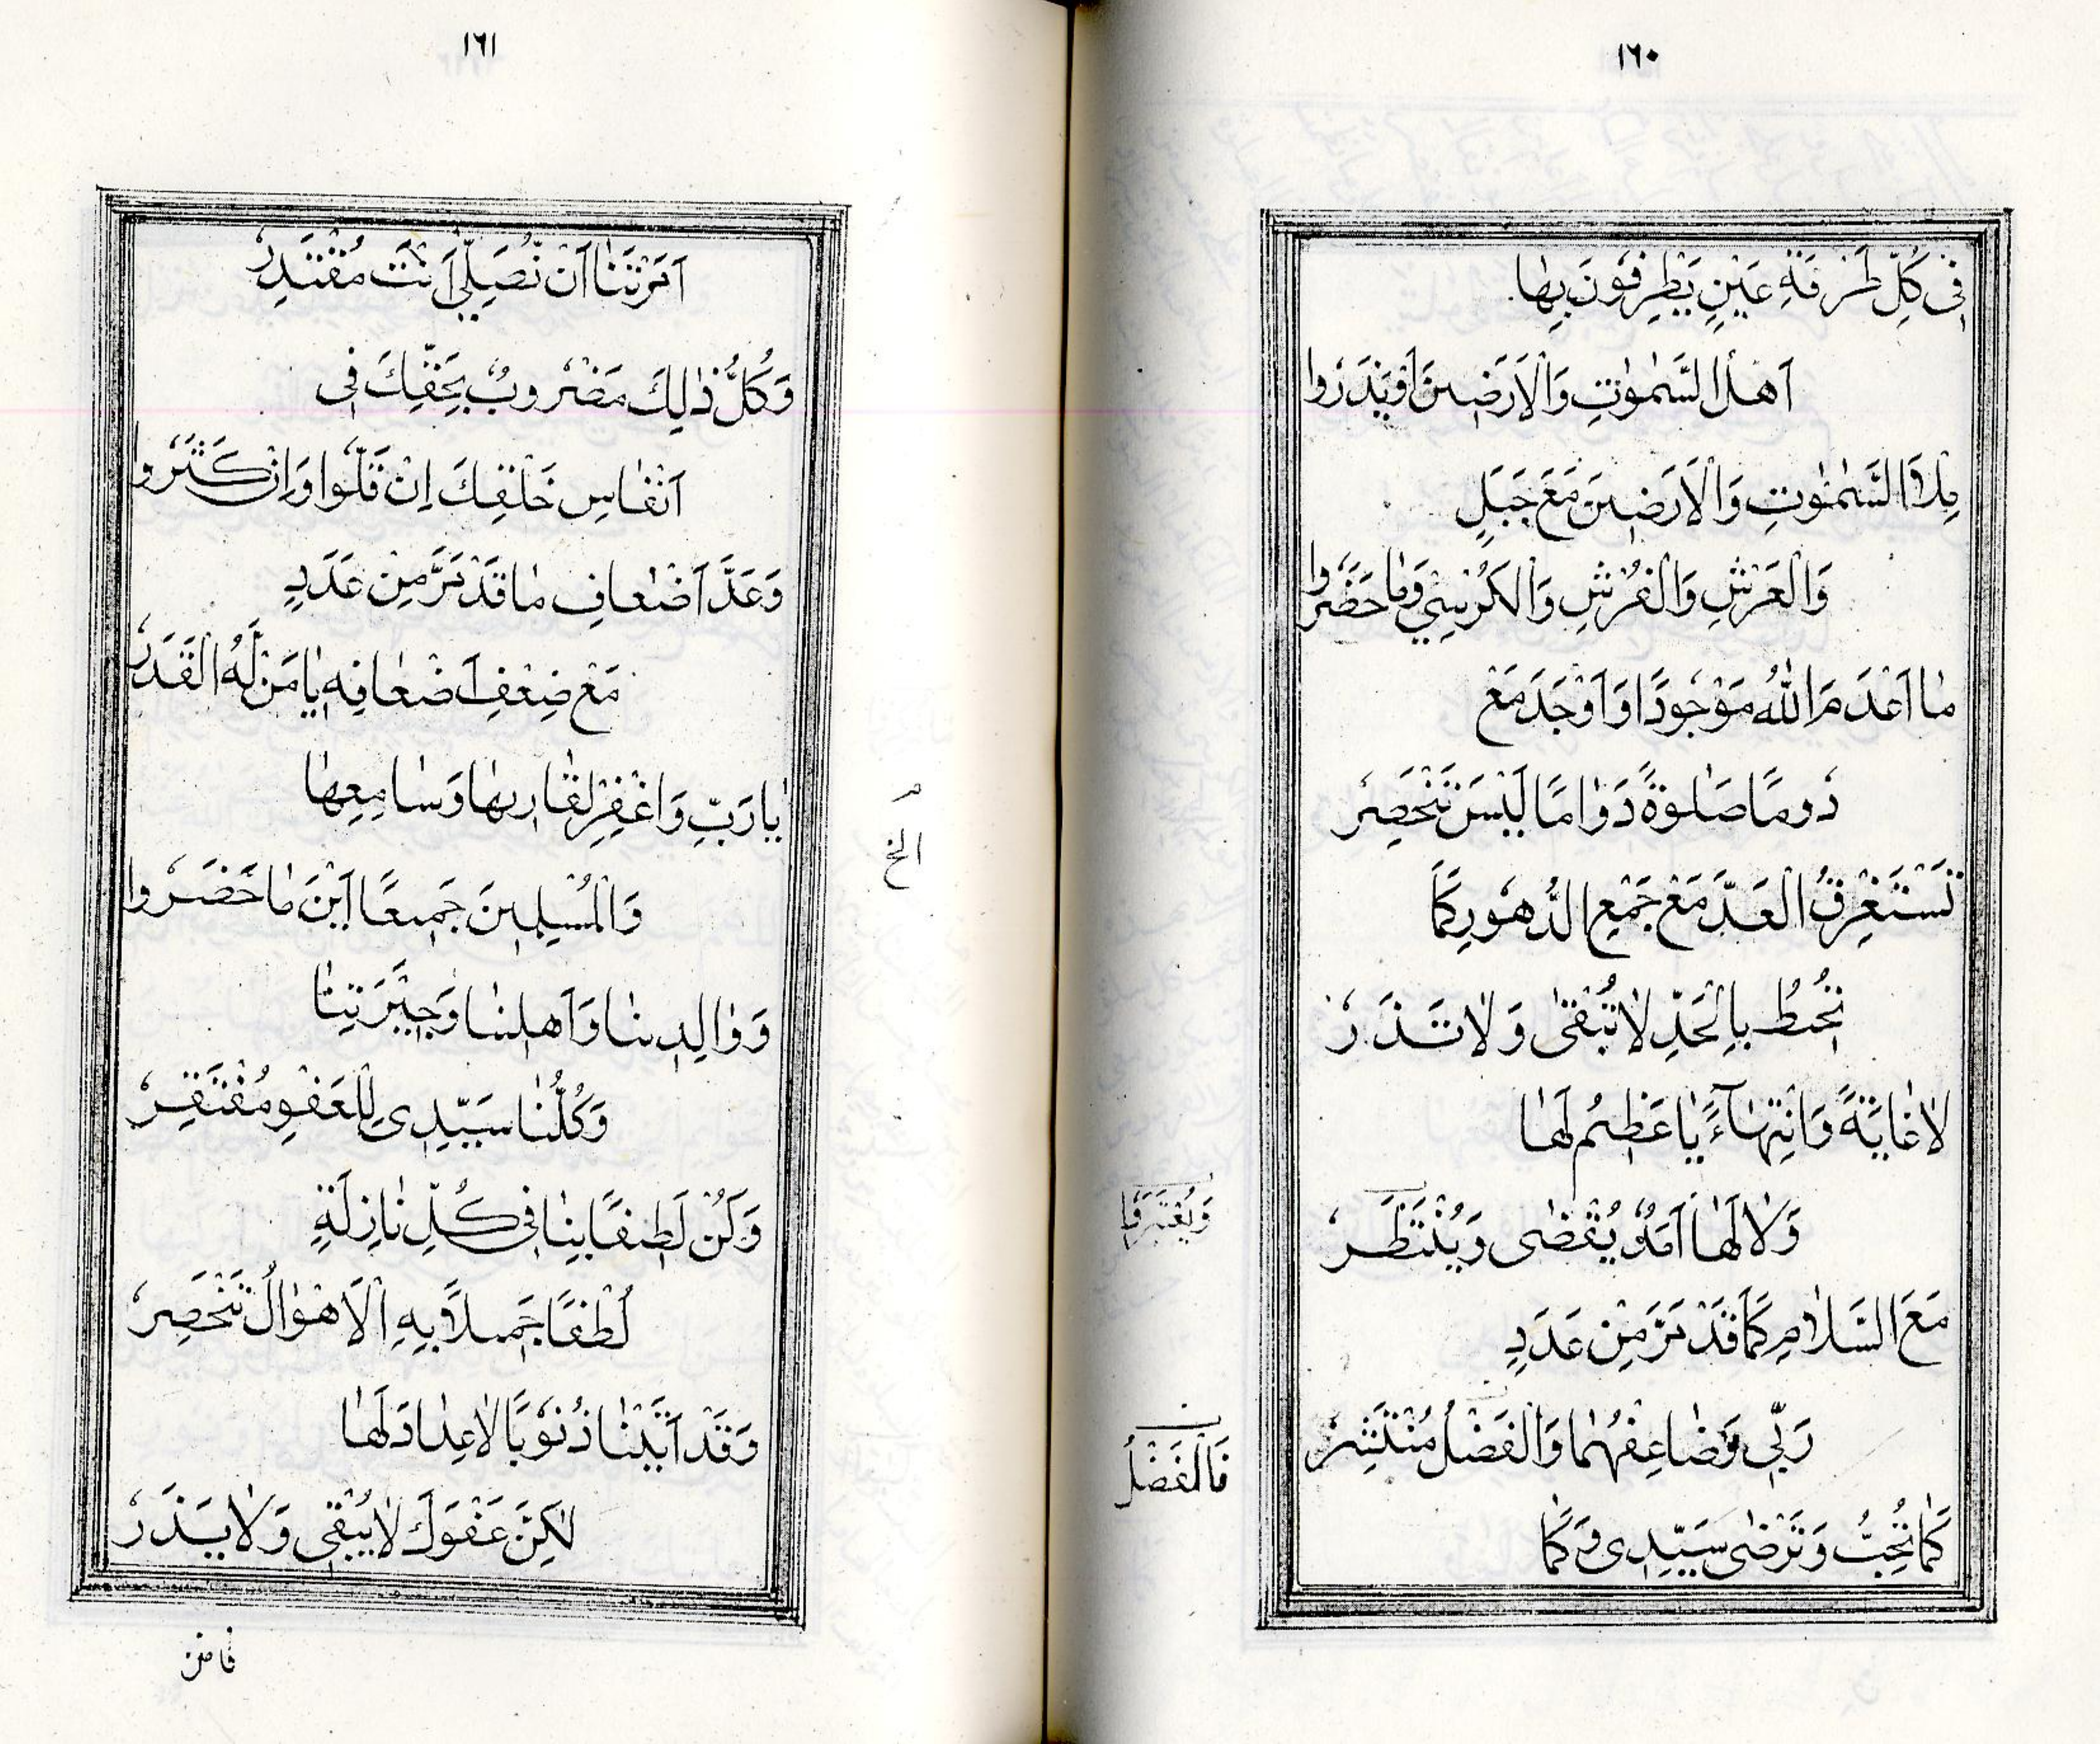 ١٦٠
فِى كُلِّ طَرْفَةِ عَيْنٍ يَطْرِفُونَ بِهَا
اَهْلُ السَّمٰوٰتِ وَالْاَرَضِينَ اَوْ يَذَرُوا
مِلْاَ السَّمٰوٰتِ وَالْاَرَضِينَ مَعَ جَبَلٍ
وَالْعَرْشِ وَالْفُرْشِ وَالْكُرْسِيْ وَمَا حَضَرُوا
مَا اَعْدَمَ اللّٰهُ مَوْجُودًا وَاَوْجَدَ مَعْ
دُومًا صَلٰوةً دَوَامًا لَيْسَ تَنْحَصِرُ
تَسْتَغْرِقُ الْعَدَّ مَعْ جَمْعِ الدُّهُورِ كَمَا
تُحِيطُ بِالْحَدِّ لَا تُبْقٰى وَلَا تَذَرُ
لَا غَايَةً وَانْتِهَاءً يَا عَظِيمُ لَهَا
وَلَا لَهَا اَمَدٌ يُقْضٰى وَيُنْتَظَرُ
وَيُعْتَبَرُ
مَعَ السَّلَامِ كَمَا قَدْ مَرَّ مِنْ عَدَدٍ
رَبِّي وَضَاعِفْهُمَا وَالْفَضْلُ مُنْتَشِرُ
ن
فَالْفَضْلُ
كَمَا تُحِبُّ وَتَرْضٰى سَيِّدِى وَكَمَا
١٦١
اَمَرْتَنَا اَنْ نُصَلِّيَ اَنْتَ مُقْتَدِرُ
وَكُلُّ ذٰلِكَ مَضْرُوبٌ بِحَقِّكَ فِى
اَنْفَاسِ خَلْقِكَ اِنْ قَلُّوا وَاِنْ كَثُرُوا
وَعَدَّ اَضْعَافِ مَا قَدْ مَرَّ مِنْ عَدَدٍ
مَعْ ضِعْفِ اَضْعَافِهِ يَا مَنْ لَهُ الْقَدَرُ
يَا رَبِّ وَاغْفِرْ لِقَارِيهَا وَسَامِعِهَا
م
الخ
وَالْمُسْلِمِينَ جَمِيعًا اَيْنَ مَا حَضَرُوا
وَوَالِدِينَا وَاَهْلِنَا وَجِيْرَتِنَا
وَكُلُّنَا سَيِّدِى لِلْعَفْوِ مُفْتَقِرُ
وَكُنْ لَطِيفًا بِنَا فِى كُلِّ نَازِلَةٍ
لُطْفًا جَمِيلًا بِهِ الْاَهْوَالُ تَنْحَصِرُ
وَقَدْ اَتَيْنَا ذُنُوبًا لَا عِدَادَ لَهَا
لٰكِنَّ عَفْوَكَ لَا يُبْقِى وَلَا يَذَرُ